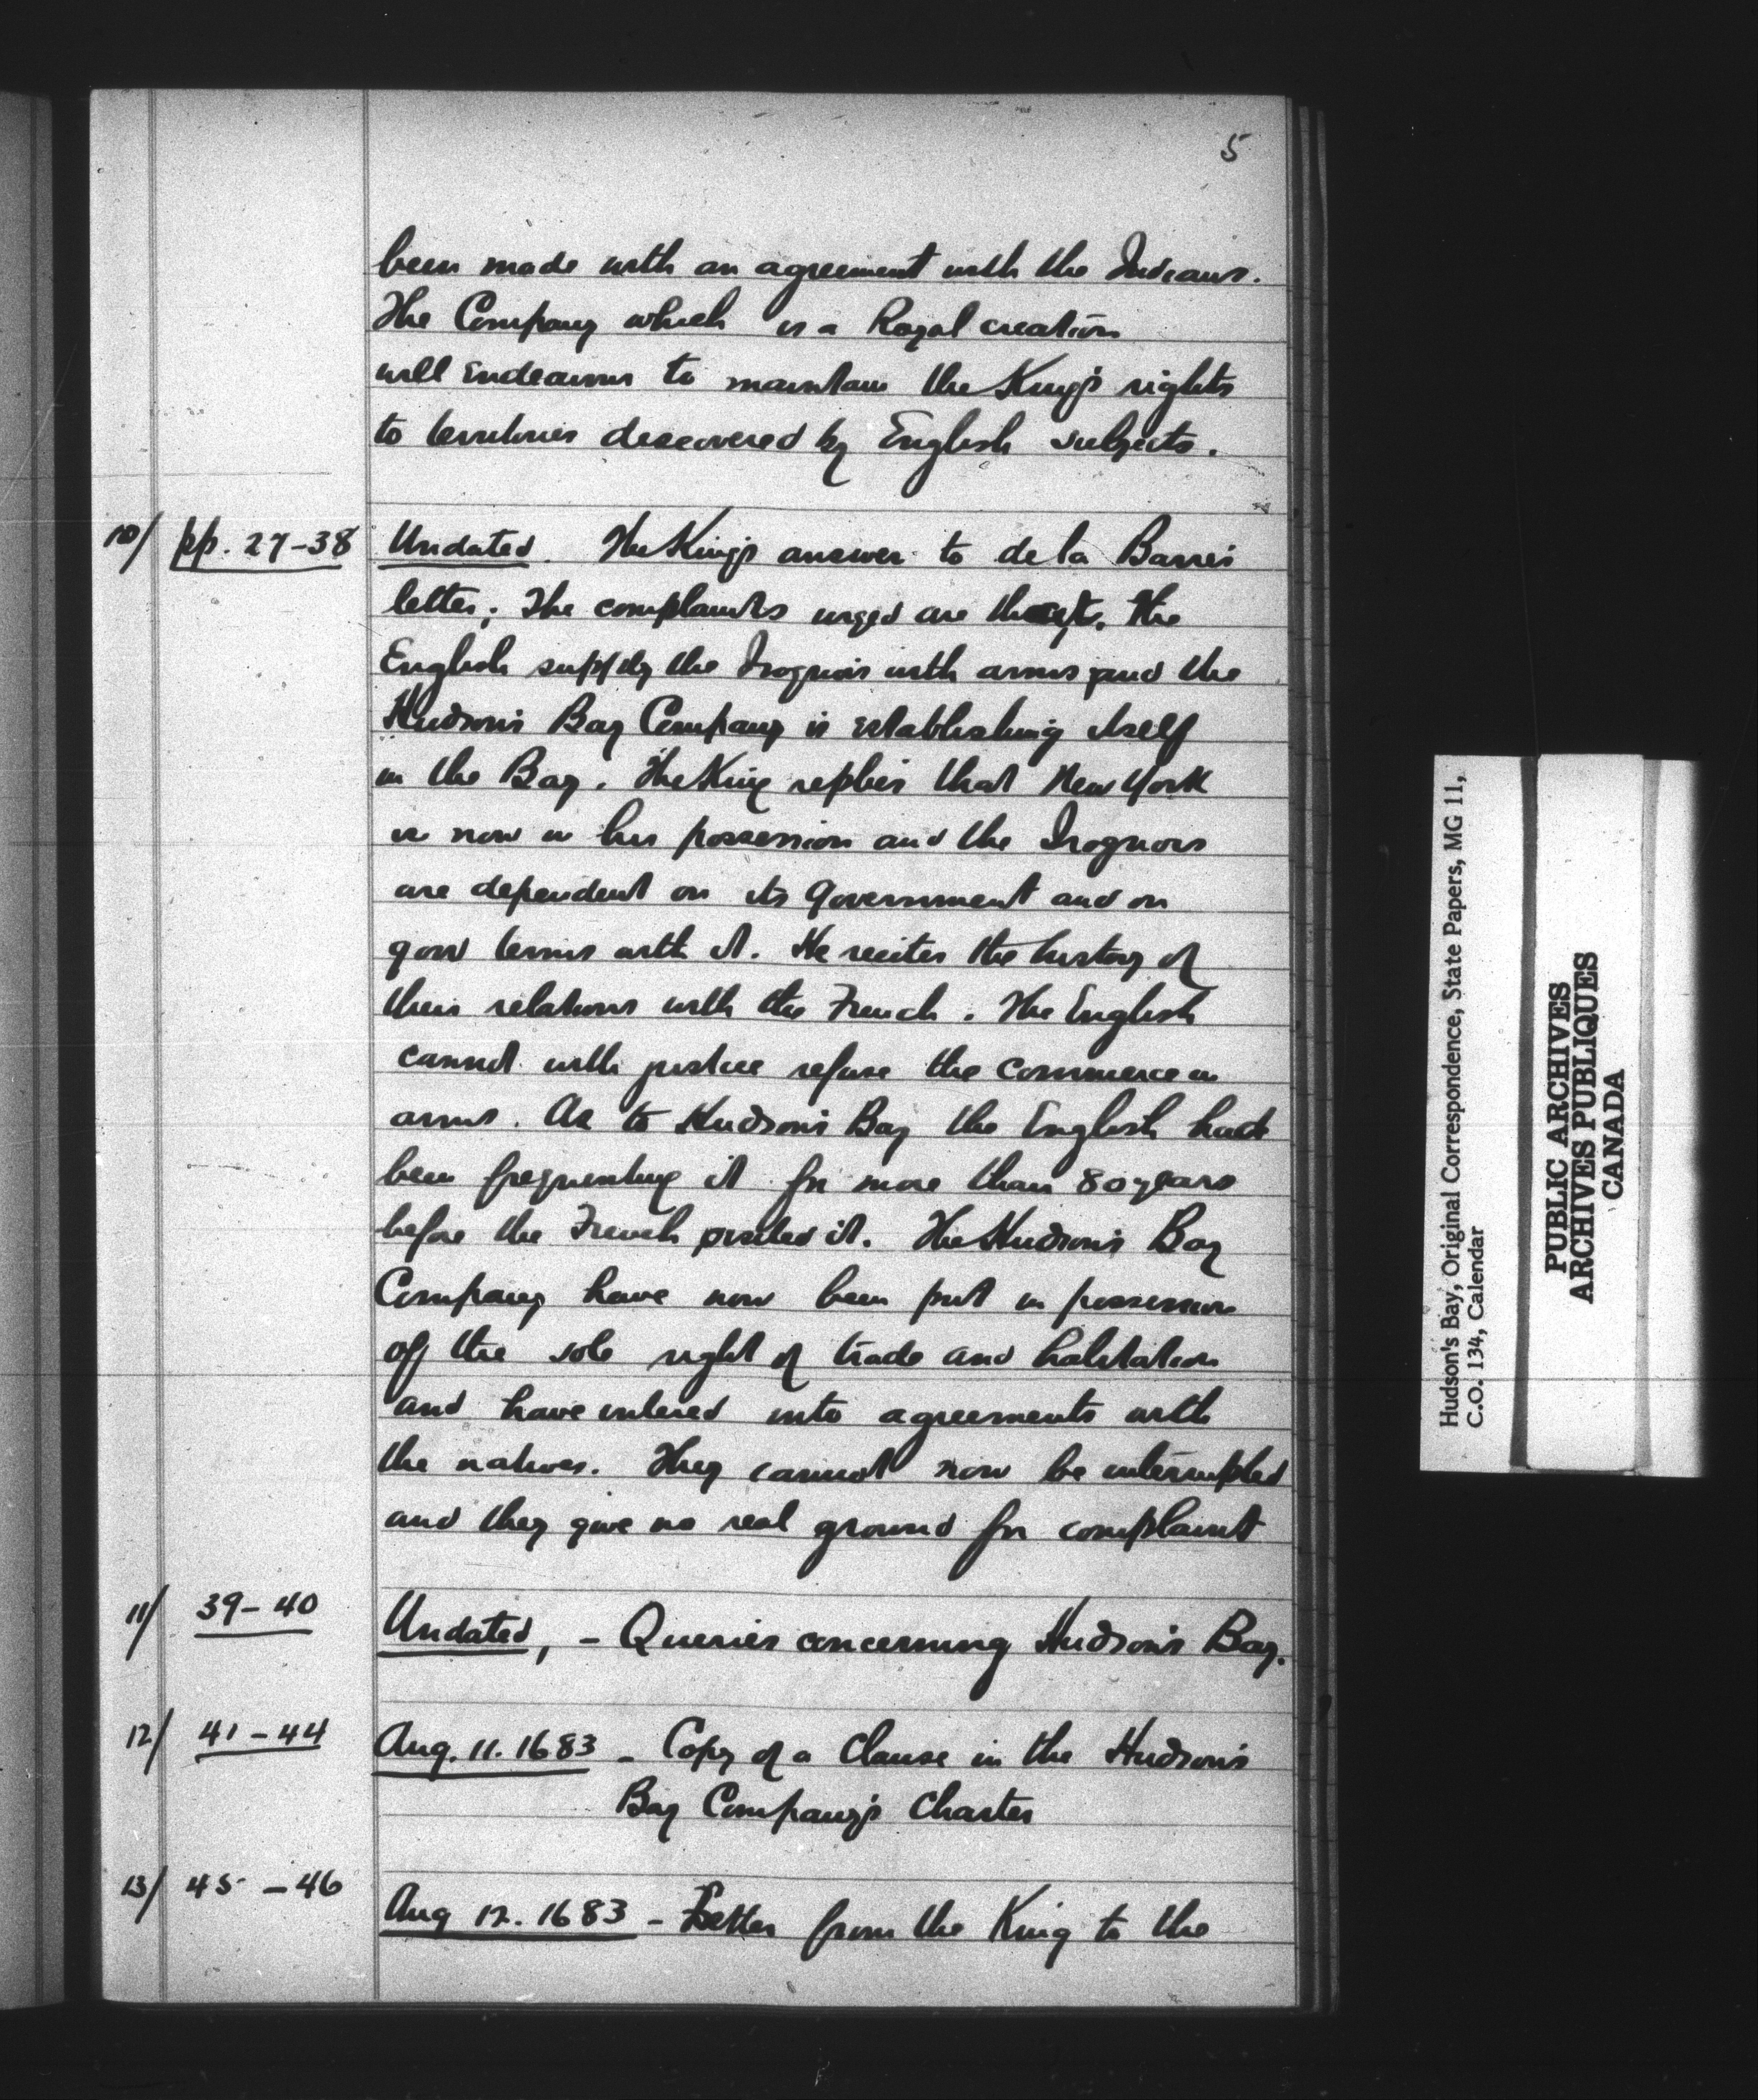 5
been made with an agreement with the Indians.
The Company which is a Royal creation
will endeavour to maintain the King's rights
to territories discovered by English subjects.
10/ pp. 27-38 Undated. The King's answer to de la Barre's
letter; The complaints urged are that the
English supply the Iroquois with arms and the
Hudson's Bay Company is establishing itself
in the Bay. The King replies that New York
is now in his possession and the Iroquois
are dependent on its Government and on
good terms with it. He recites the history of
their relations with the French. The English
cannot with justice refuse the commerce in
arms. As to Hudson's Bay the English had
been frequenting it for more than 80 years
before the French visited it. The Hudson's Bay
Company have now been put in possession
of the sole right of trade and habitation
and have entered into agreements with
the natives. They cannot now be interrupted
and they give no real ground for complaint
11/ 39-40 Undated, - Queries concerning Hudson's Bay.
12/ 41-44 Aug. 11. 1683 - Copy of a Clause in the Hudson's
Bay Company's Charter
13/ 45-46 Aug 12. 1683 - Letter from the King to the
Hudson's Bay, Original Correspondence, State Papers, MG 11,
C.O. 134, Calendar
PUBLIC ARCHIVES
ARCHIVES PUBLIQUES
CANADA